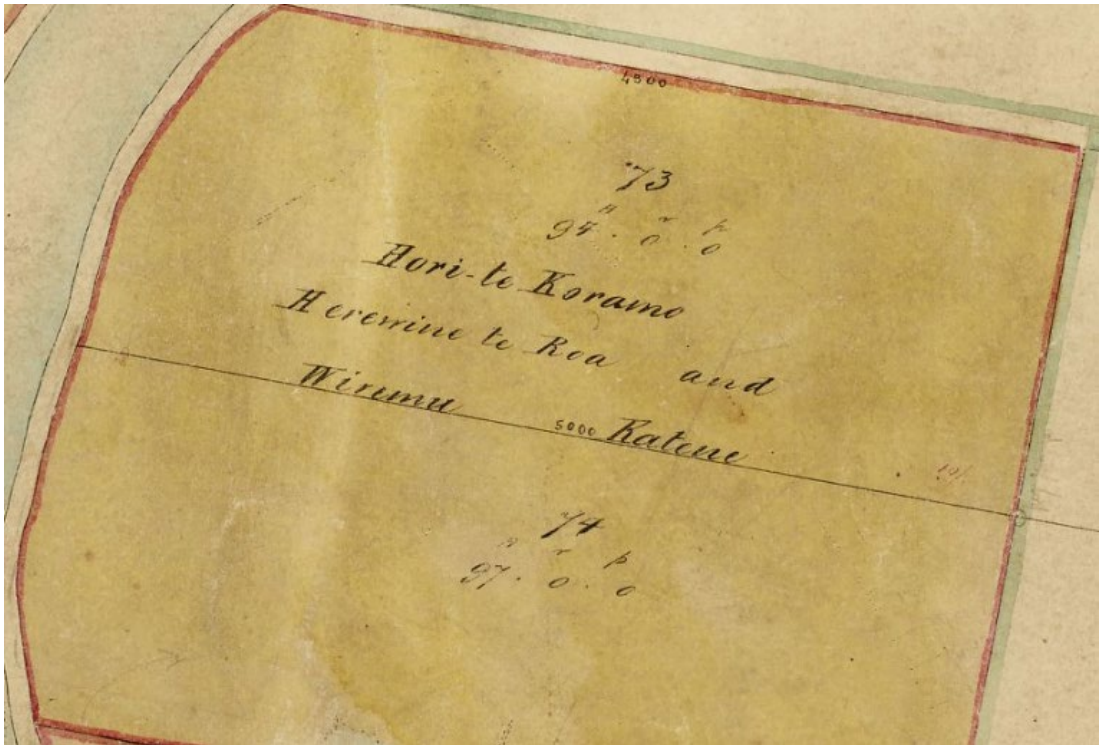 4900
73
A r p
94 . 0 . 0
Hori-te Koramo
Herewine te Roa and
Wiremu Katene
5000
74
A r p
97 . 0 . 0